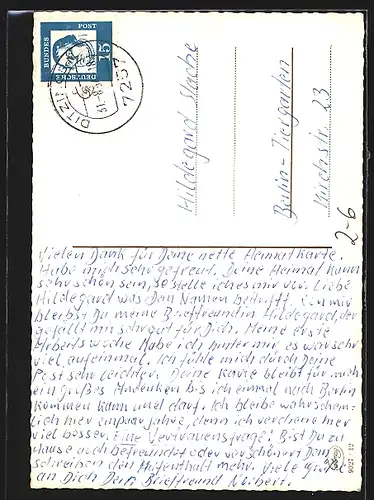 DEUTSCHE
BUNDESPOST
15
DITZINGEN
7257
Hildegard
Berlin-Tiergarten
Kirchstr. 23
2-6
Vielen Dank für Deine nette Heimatkarte.
Habe mich sehr gefreut. Deine Heimat kann
sehr schön sein, so stelle ich es mir vor. Liebe
Hildegard was Dein Namen betrifft. Von mir
bleibst Du meine Brieffreundin Hildegard, der
gefällt mir sehr gut für Dich. Meine erste
Arbeitswoche habe ich hinter mir es war sehr
viel aufeinmal. Ich fühle mich durch Deine
Post sehr leichter. Deine Karte bleibt für mich
ein großes Andenken bis ich einmal nach Berlin
kommen kann und darf. Ich bleibe wahrschein-
lich hier ein paar Jahre, denn ich verdiene hier
viel besser. Eine Vertrauensfrage! Bist Du zu
Hause auch befreundet oder verschönert Dein
schreiben den Aufenthalt mehr. Viele Grüße
an Dich Dein Brieffreund Norbert.